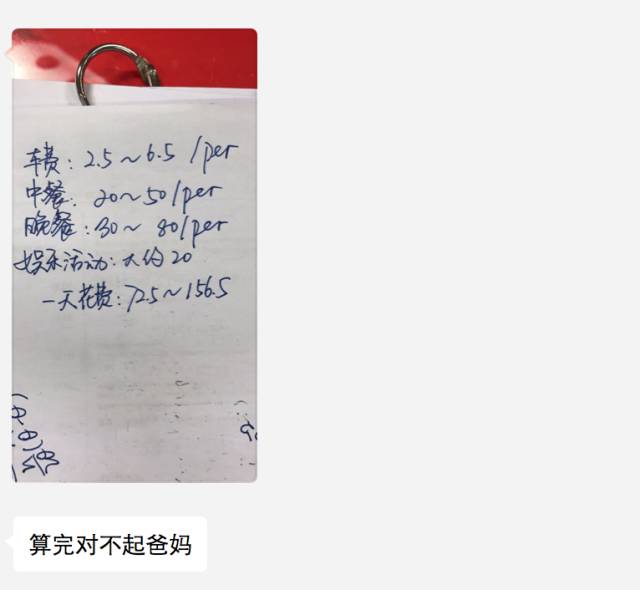 车费: 2.5~6.5 /per
中餐: 20~50/per
晚餐: 30~80/per
娱乐活动: 大约20
一天花费: 72.5~156.5
算完对不起爸妈